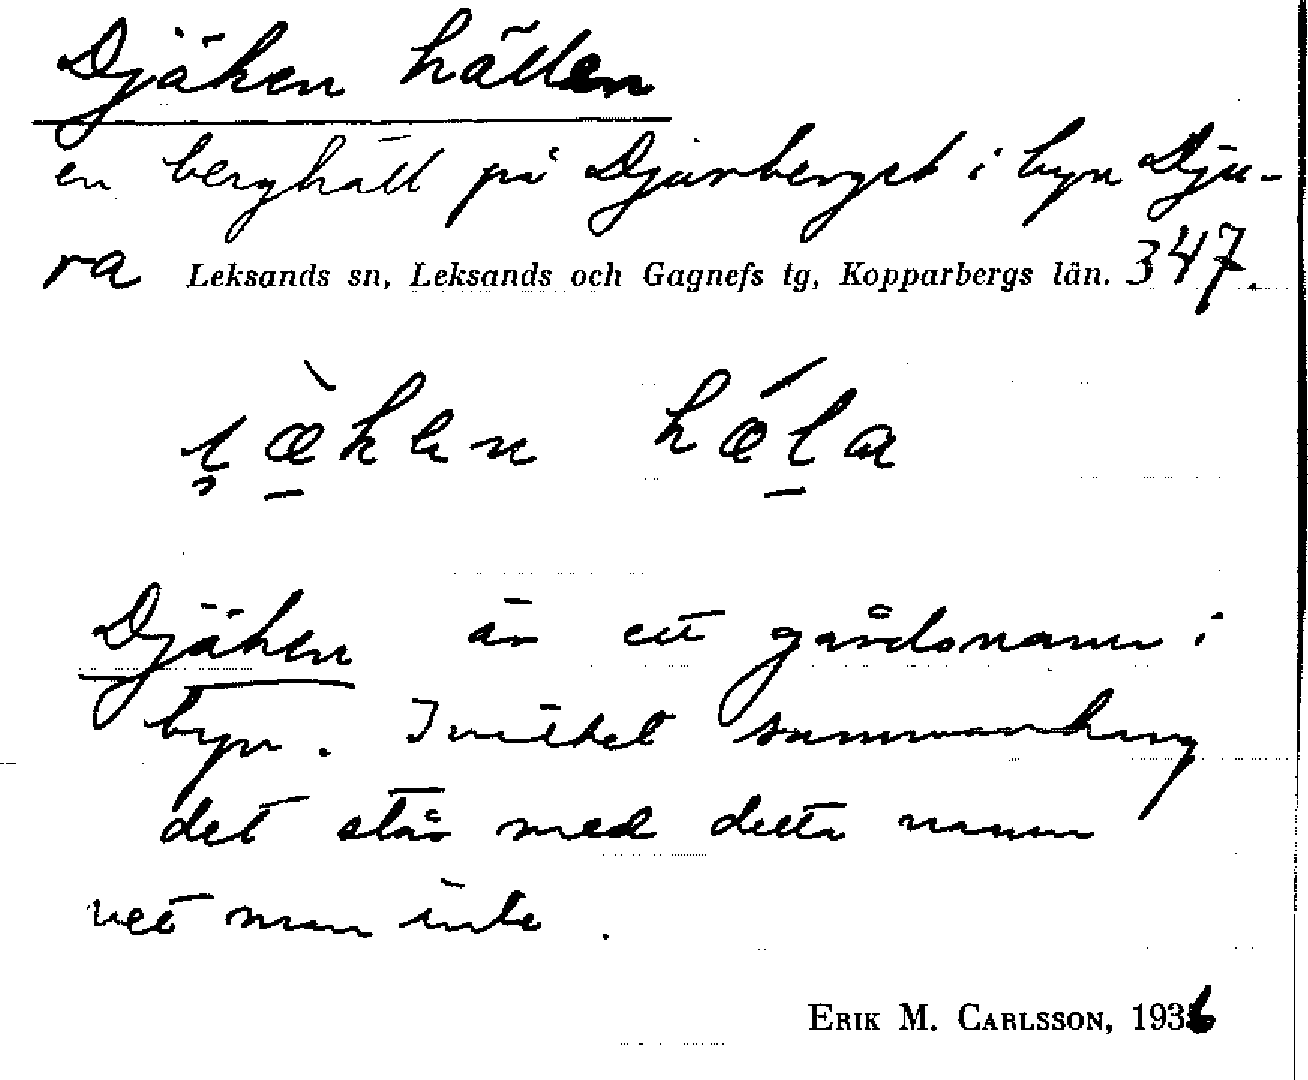 Djäken hällen
en berghäll på Djurberget i byn Dju-
ra Leksands sn, Leksands och Gagnefs tg, Kopparbergs län. 347.
hǽla
Djäken är ett gårdsnamn i
byn. I vilket sammanhang
det står med detta namn
vet man inte.
ERIK M. CARLSSON, 1936